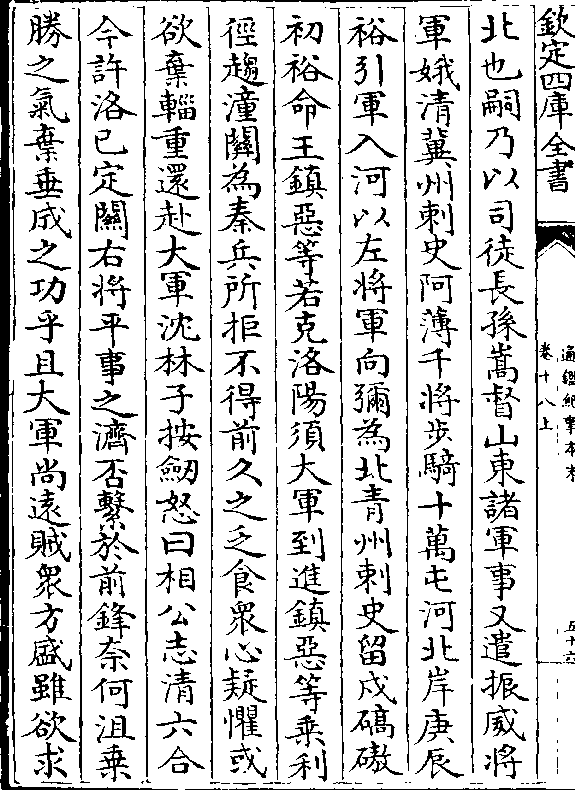 欽定四庫全書
通鑑紀事本末
卷十八上
五十六
北也嗣乃以司徒長孫嵩督山東諸軍事又遣振威將
軍娥清冀州刺史阿薄千將步騎十萬屯河北岸庚辰
裕引軍入河以左將軍向彌為北青州刺史留戍碻磝
初裕命王鎮惡等若克洛陽須大軍到進鎮惡等乗利
徑趨潼關為秦兵所拒不得前久之乏食衆心疑懼或
欲棄輜重還赴大軍沈林子按劒怒曰相公志清六合
今許洛已定關右將平事之濟否繫於前鋒奈何沮乗
勝之氣棄垂成之功乎且大軍尚遠賊衆方盛雖欲求